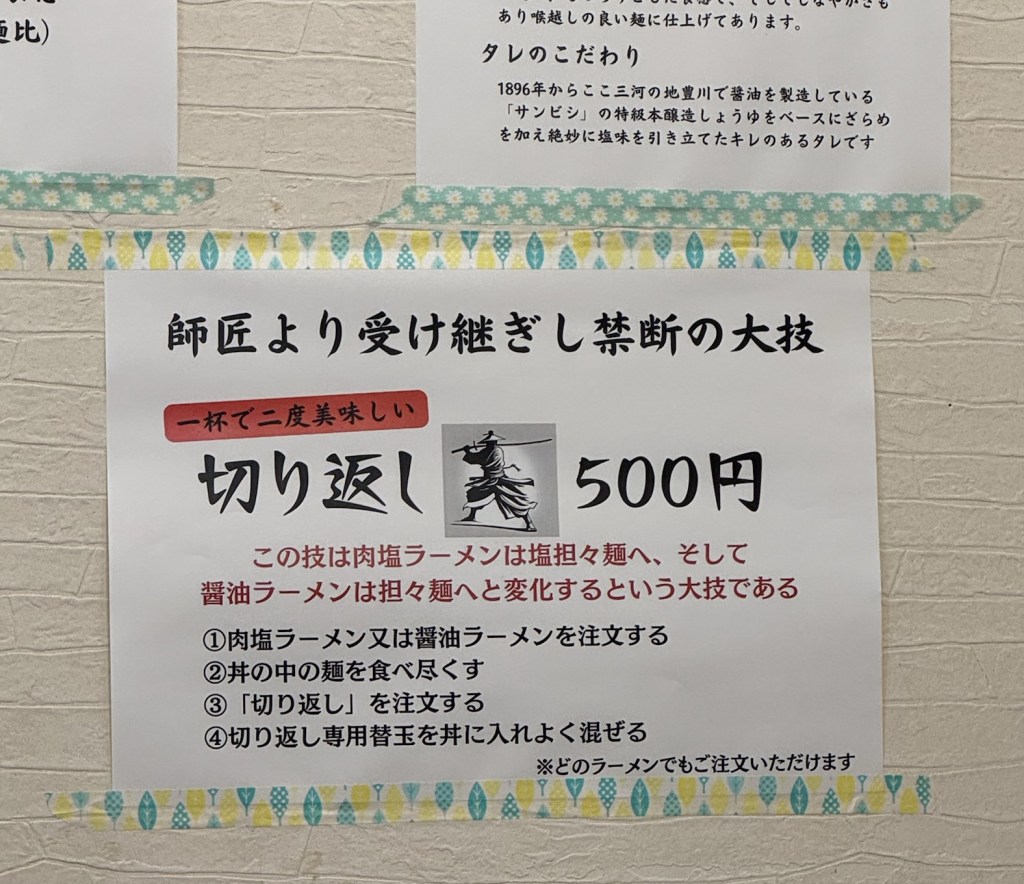 麺比）
あり喉越しの良い麺に仕上げてあります。
タレのこだわり
1896年からここ三河の地豊川で醤油を製造している
「サンビシ」の特級本醸造しょうゆをベースにざらめ
を加え絶妙に塩味を引き立てたキレのあるタレです
師匠より受け継ぎし禁断の大技
一杯で二度美味しい
切り返し 500円
この技は肉塩ラーメンは塩担々麺へ、そして
醤油ラーメンは担々麺へと変化するという大技である
①肉塩ラーメン又は醤油ラーメンを注文する
②丼の中の麺を食べ尽くす
③「切り返し」を注文する
④切り返し専用替玉を丼に入れよく混ぜる
※どのラーメンでもご注文いただけます